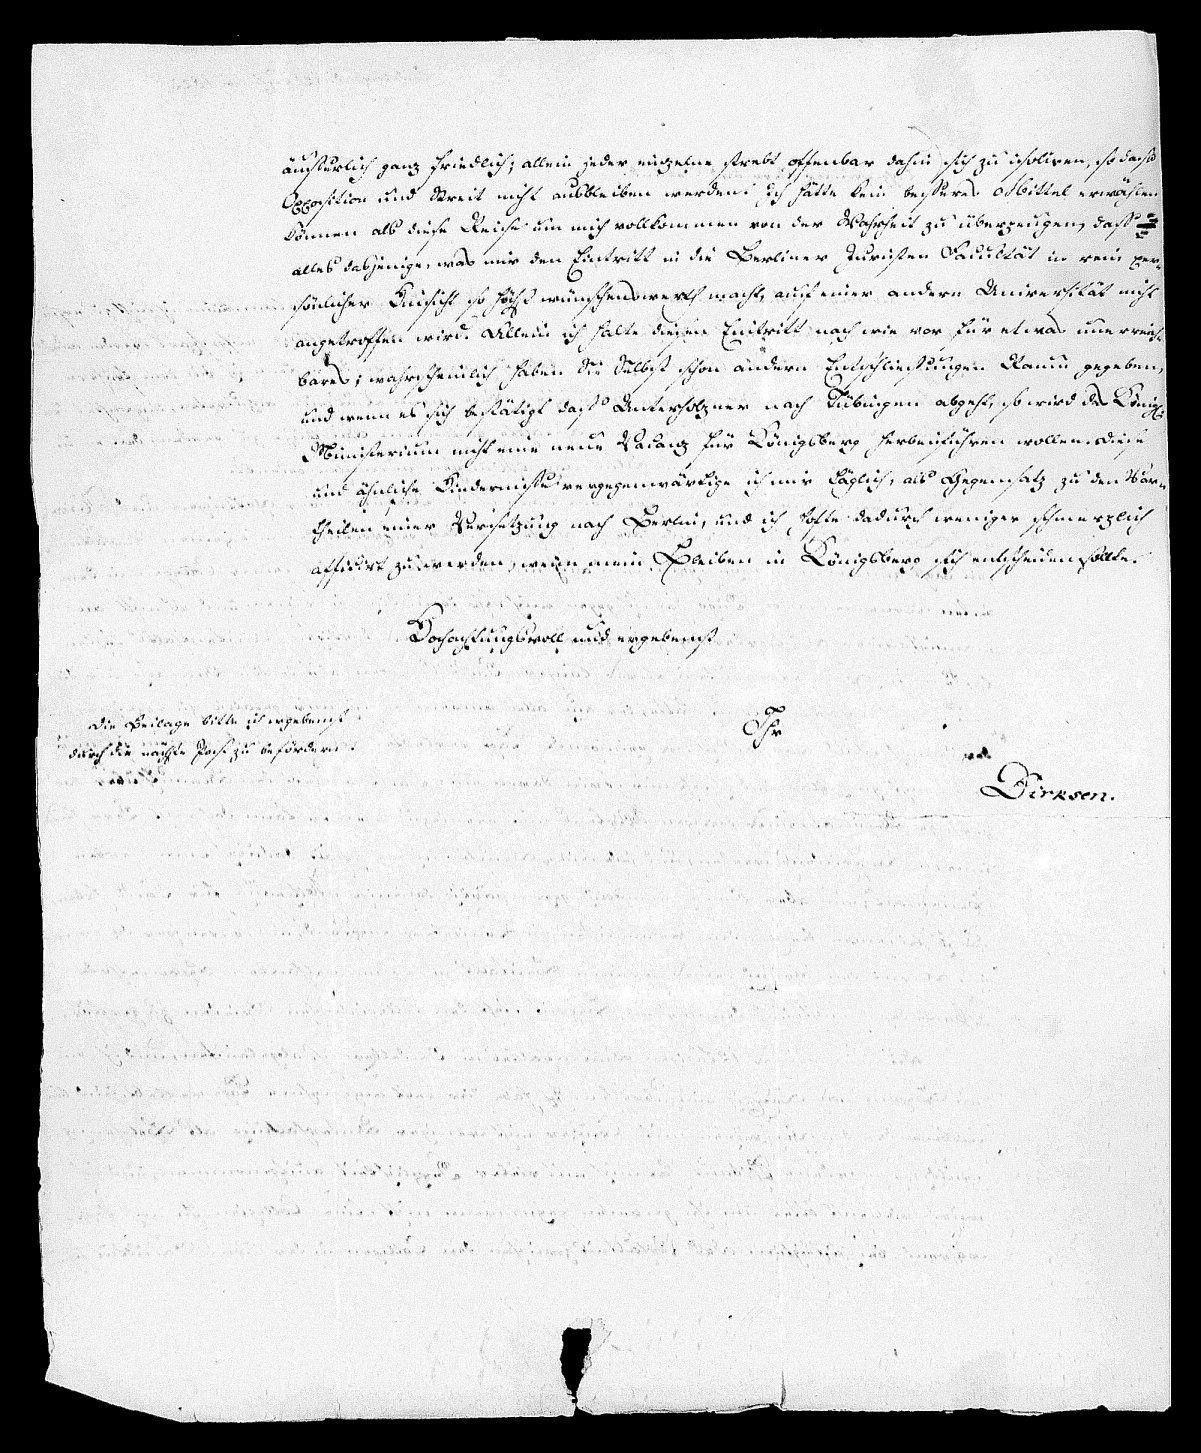 äusserlich ganz friedlich; allein jeder einzelne strebt offenbar dahin sich zu isoliren, so dass
Opposition und Streit nicht ausbleiben werden. Ich hätte kein besseres Mittel erwählen
können als diese Reise um mich vollkommen von der Wahrheit zu überzeugen, dass
alles dasjenige, was mir den Eintritt in die Berliner Juristen Facultät in rein per-
sönlicher Hinsicht so höchst wünschenswerth macht, auf einer andern Universität nicht
angetroffen wird. Allein ich halte diesen Eintritt nach wie vor für etwas unerreich-
bares; wahrscheinlich haben Sie Selbst schon andern Entschliessungen Raum gegeben,
und wenn es sich bestätigt dass Unterholzner nach Tübingen abgeht, so wird das Königl.
Ministerium nicht eine neue Vacanz für Königsberg herbeiführen wollen. Diese
und ähnliche Hindernisse vergegenwärtige ich mir täglich, als Gegensatz zu den Vor-
theilen einer Versetzung nach Berlin, und ich hoffe dadurch weniger schmerzlich
afficirt zu werden, wenn mein Bleiben in Königsberg sich entscheiden sollte.
Hochachtungsvoll und ergebenst
Ihr
Die Beilage bitte ich ergebenst
durch die nächste Post zu befördern.
Dirksen.